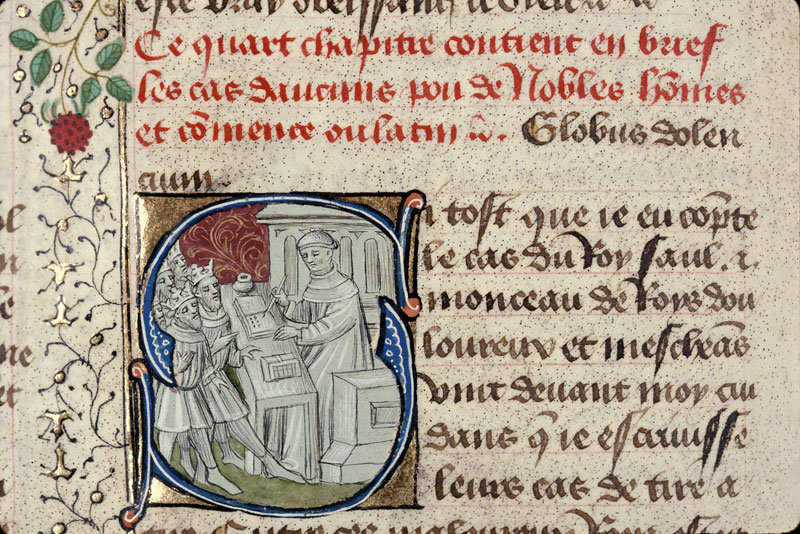 Ce quart chapitre contient en brief
les cas daucuns pou de Nobles hõmes
et cõmence ou latin &. Globus dolen
cium.
i tost que ie eu cõpte
le cas du Roy saul. i.
monceau de Roys dou
loureux et mescheãs
vint deuant moy cui
dans q̃ ie escriuisse
leurs cas de tire a